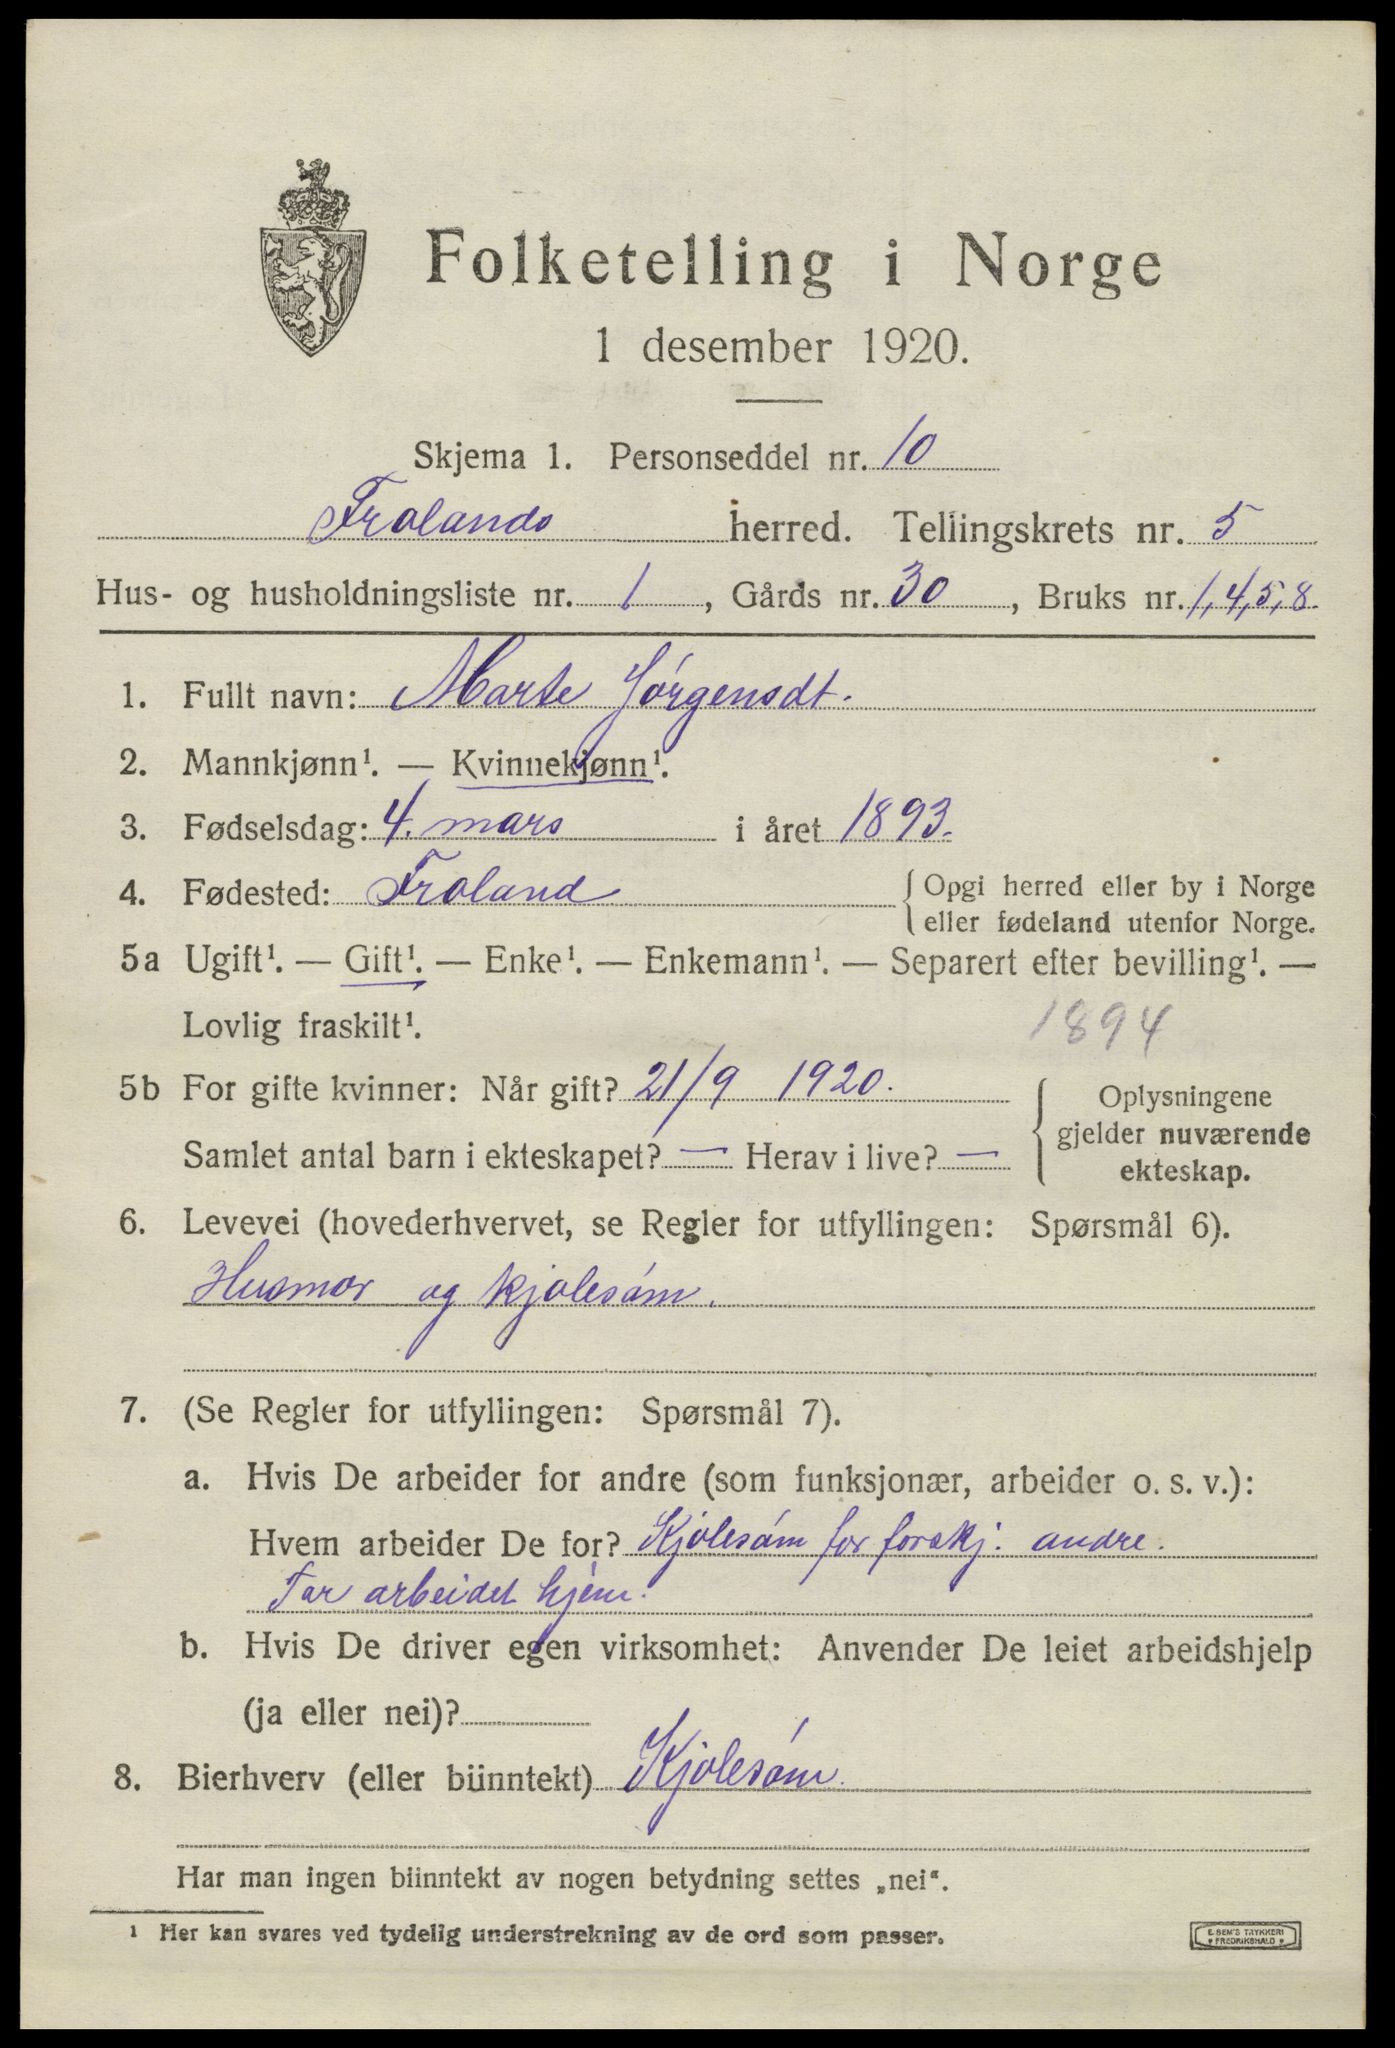 Folketelling i Norge
1 desember 1920.
Skjema 1. Personseddel nr. 10
Frolands herred. Tellingskrets nr. 5
Hus- og husholdningsliste nr. 1, Gårds nr. 30, Bruks nr. 1,4,5,8.
1. Fullt navn: Marte Jørgensdt.
2. Mannkjønn¹. — Kvinnekjønn¹.
3. Fødselsdag: 4. mars i året 1893.
4. Fødested: Froland { Opgi herred eller by i Norge
eller fødeland utenfor Norge.
5a Ugift¹. — Gift¹. — Enke¹. — Enkemann¹. — Separert efter bevilling¹. —
Lovlig fraskilt¹. 1894
5b For gifte kvinner: Når gift? 21/9 1920. { Oplysningene
gjelder nuværende
Samlet antal barn i ekteskapet? — Herav i live? —
ekteskap.
6. Levevei (hovederhvervet, se Regler for utfyllingen: Spørsmål 6).
Husmor og kjolesøm.
7. (Se Regler for utfyllingen: Spørsmål 7).
a. Hvis De arbeider for andre (som funksjonær, arbeider o. s. v.):
Hvem arbeider De for? Kjolesøm for forskj. andre.
Tar arbeidet hjem.
b. Hvis De driver egen virksomhet: Anvender De leiet arbeidshjelp
(ja eller nei)?
8. Bierhverv (eller biinntekt) Kjolesøm.
Har man ingen biinntekt av nogen betydning settes „nei“.
¹ Her kan svares ved tydelig understrekning av de ord som passer.
E. SEM'S TRYKKERI
* FREDRIKSHALD *